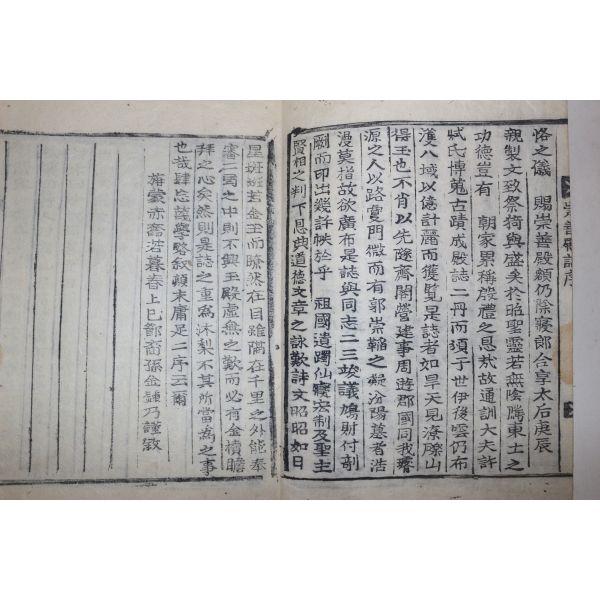 恪之儀 賜崇善殿額仍除寢郎合享太后庚辰
親製文致祭猗與盛矣於昭聖靈若無隆隲東土之
功德豈有 朝家累稱殷禮之恩哉故通訓大夫許
烒氏博蒐古蹟成殿誌二冊而頒于世伊後雲仍布
濩八域以億計麗而獲覧是誌者如旱天見潦隙山
得玉也不肖以先隧齋閣營建事周遊郡國同我譽
源之人以路寠門微而有郭崇韜之凝汾陽墓者浩
漫莫指故欲廣布是誌與同志二三竣議鳩財付剞
劂而印出幾許帙於乎 祖國遺躅仙寢宏制及聖主
賢相之判下恩典道德文章之詠歎詩文昭昭如日
星班班若金玉而瞭然在目雖隔在千里之外能奉
審二周之中則不興玉殿虛無之歎而必有金檟瞻
拜之心矣然則是誌之重為沐梨不其所當為之事
也哉肆忘謭學略叙顛末庸足二序云爾
蒋蒙赤奮若暮春上巳鄮裔孫金鍾乃謹敘
崇善殿誌序